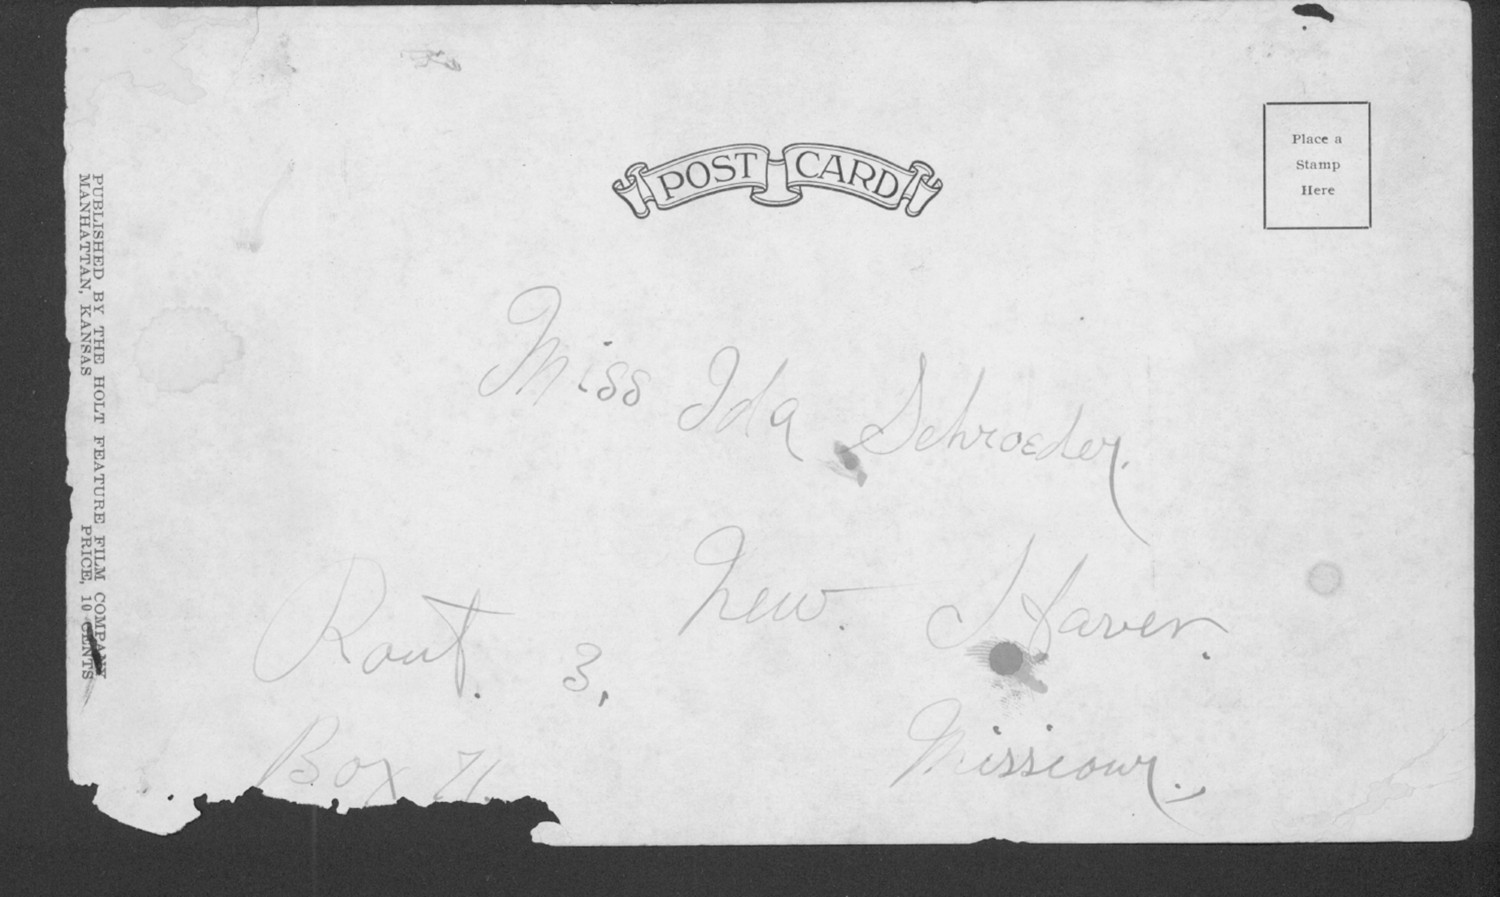 POST CARD
Place a
Stamp
Here
PUBLISHED BY THE HOLT FEATURE FILM COMPANY
MANHATTAN, KANSAS PRICE, 10 CENTS
Miss Ida Schroeder.
New. Haven.
Rout. 3,
Missiour.
Box 71